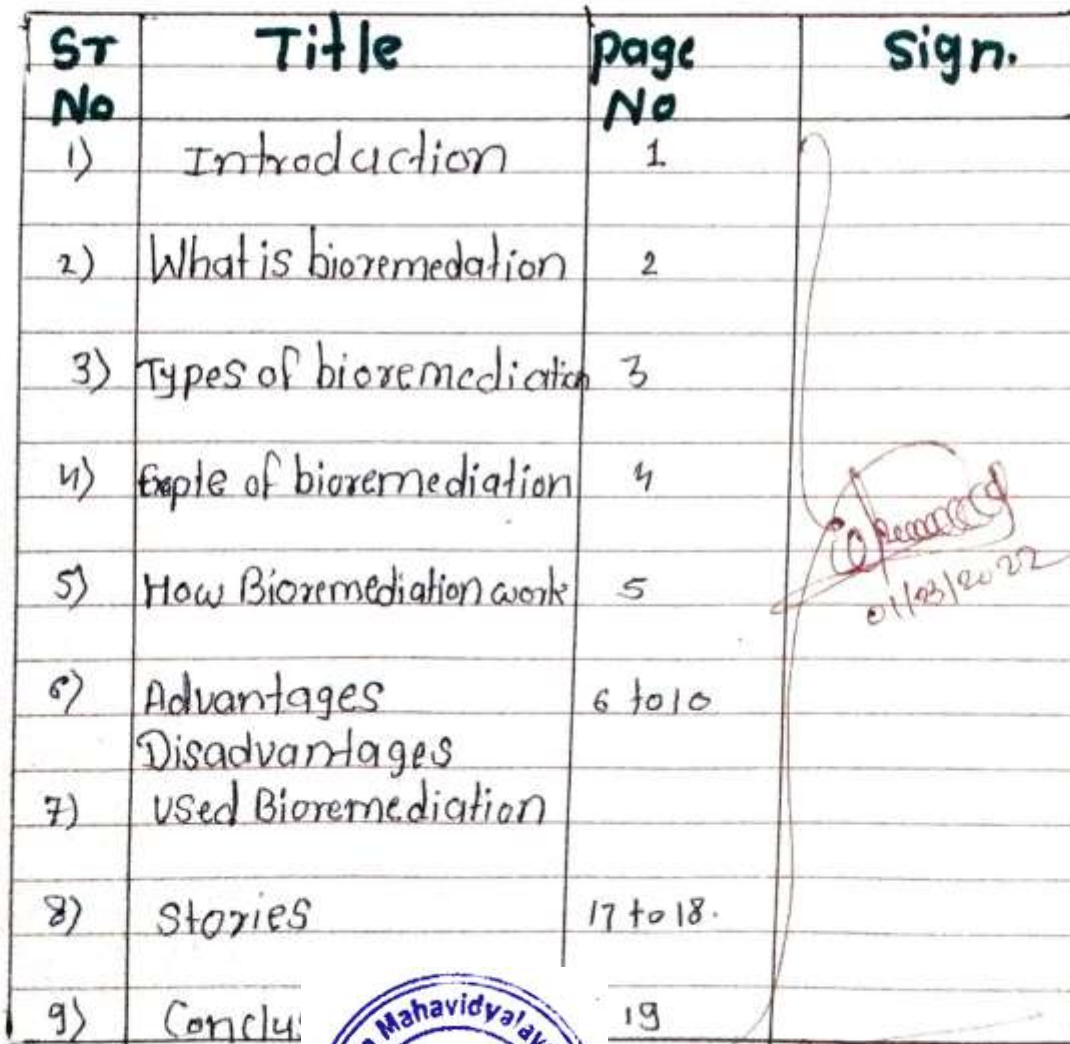 Sr Title page Sign.
No No
1) Introduction 1
2) What is bioremedation 2
3) Types of bioremediation 3
4) Exaple of bioremediation 4
5) How Bioremediation work 5
01/03/2022
6) Advantages 6 to 10
Disadvantages
7) Used Bioremediation
8) Stories 17 to 18.
9) Conclus 19
Mahavidyalay